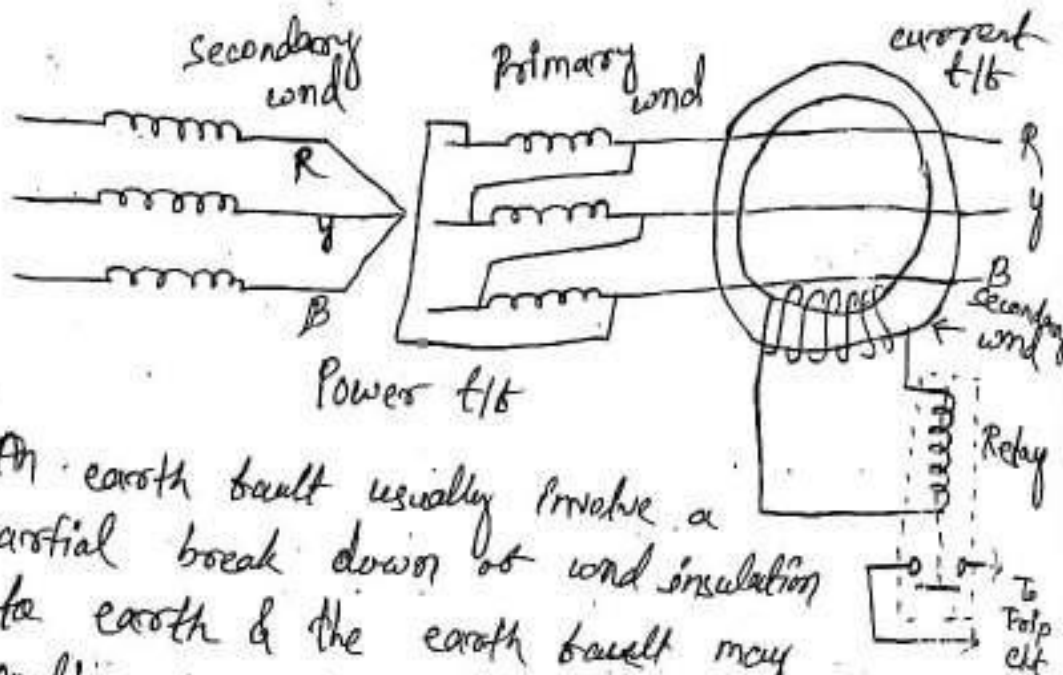 Secondary
wnd
Primary
wnd
current
t/f
R
Y
B
R
Y
B
Secondary
wnd
Power t/f
Relay
To
Trip
ckt
An earth fault usually involve a
artial break down of wnd insulation
to earth & the earth fault may